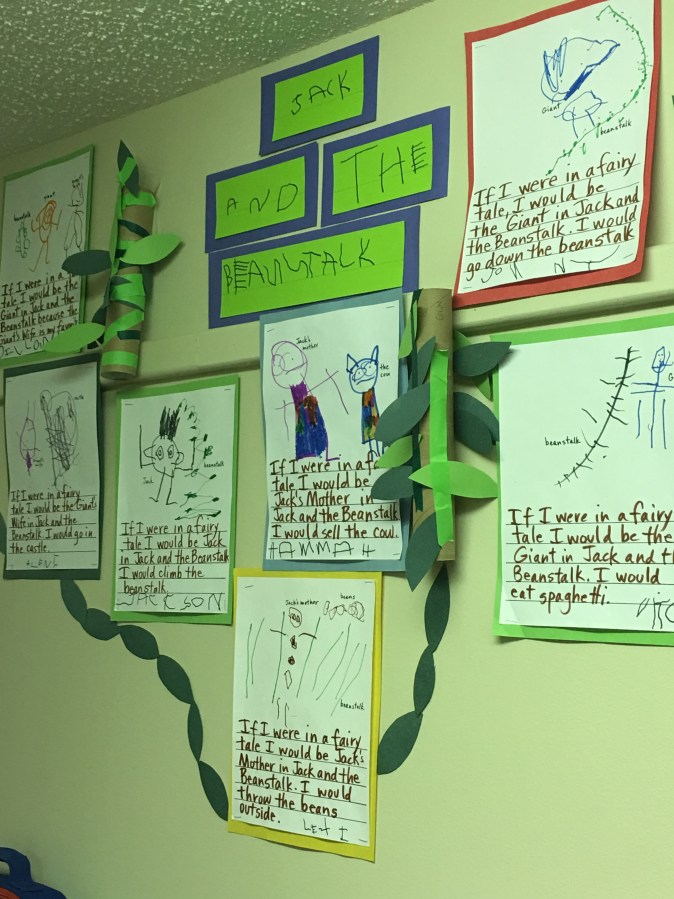 JACK
AND THE
BEANSTALK
Giant
beanstalk
If I were in a fairy
tale, I would be
the Giant in Jack and
the Beanstalk. I would
go down the beanstalk
beanstalk
If I were in a
tale I would be the
Giant in Jack and the
Beanstalk because the
Giant's wife is my favorit
If I were in a fairy
tale I would be the Giant's
Wife in Jack and the
Beanstalk. I would go in
the castle.
Jack
beanstalk
If I were in a fairy
tale I would be Jack
in Jack and the Beanstalk
I would climb the
beanstalk.
JACKSON
Jack's
mother
the
cow
If I were in a fa
tale I would be
Jack's Mother in
Jack and the Beanstalk
I would sell the cow.
HAMMAH
beanstalk
If I were in a fairy
tale I would be the
Giant in Jack and th
Beanstalk. I would
eat spaghetti.
Jack's mother
beans
beanstalk
If I were in a fairy
tale I would be Jack's
Mother in Jack and the
Beanstalk. I would
throw the beans
outside.
LEXI